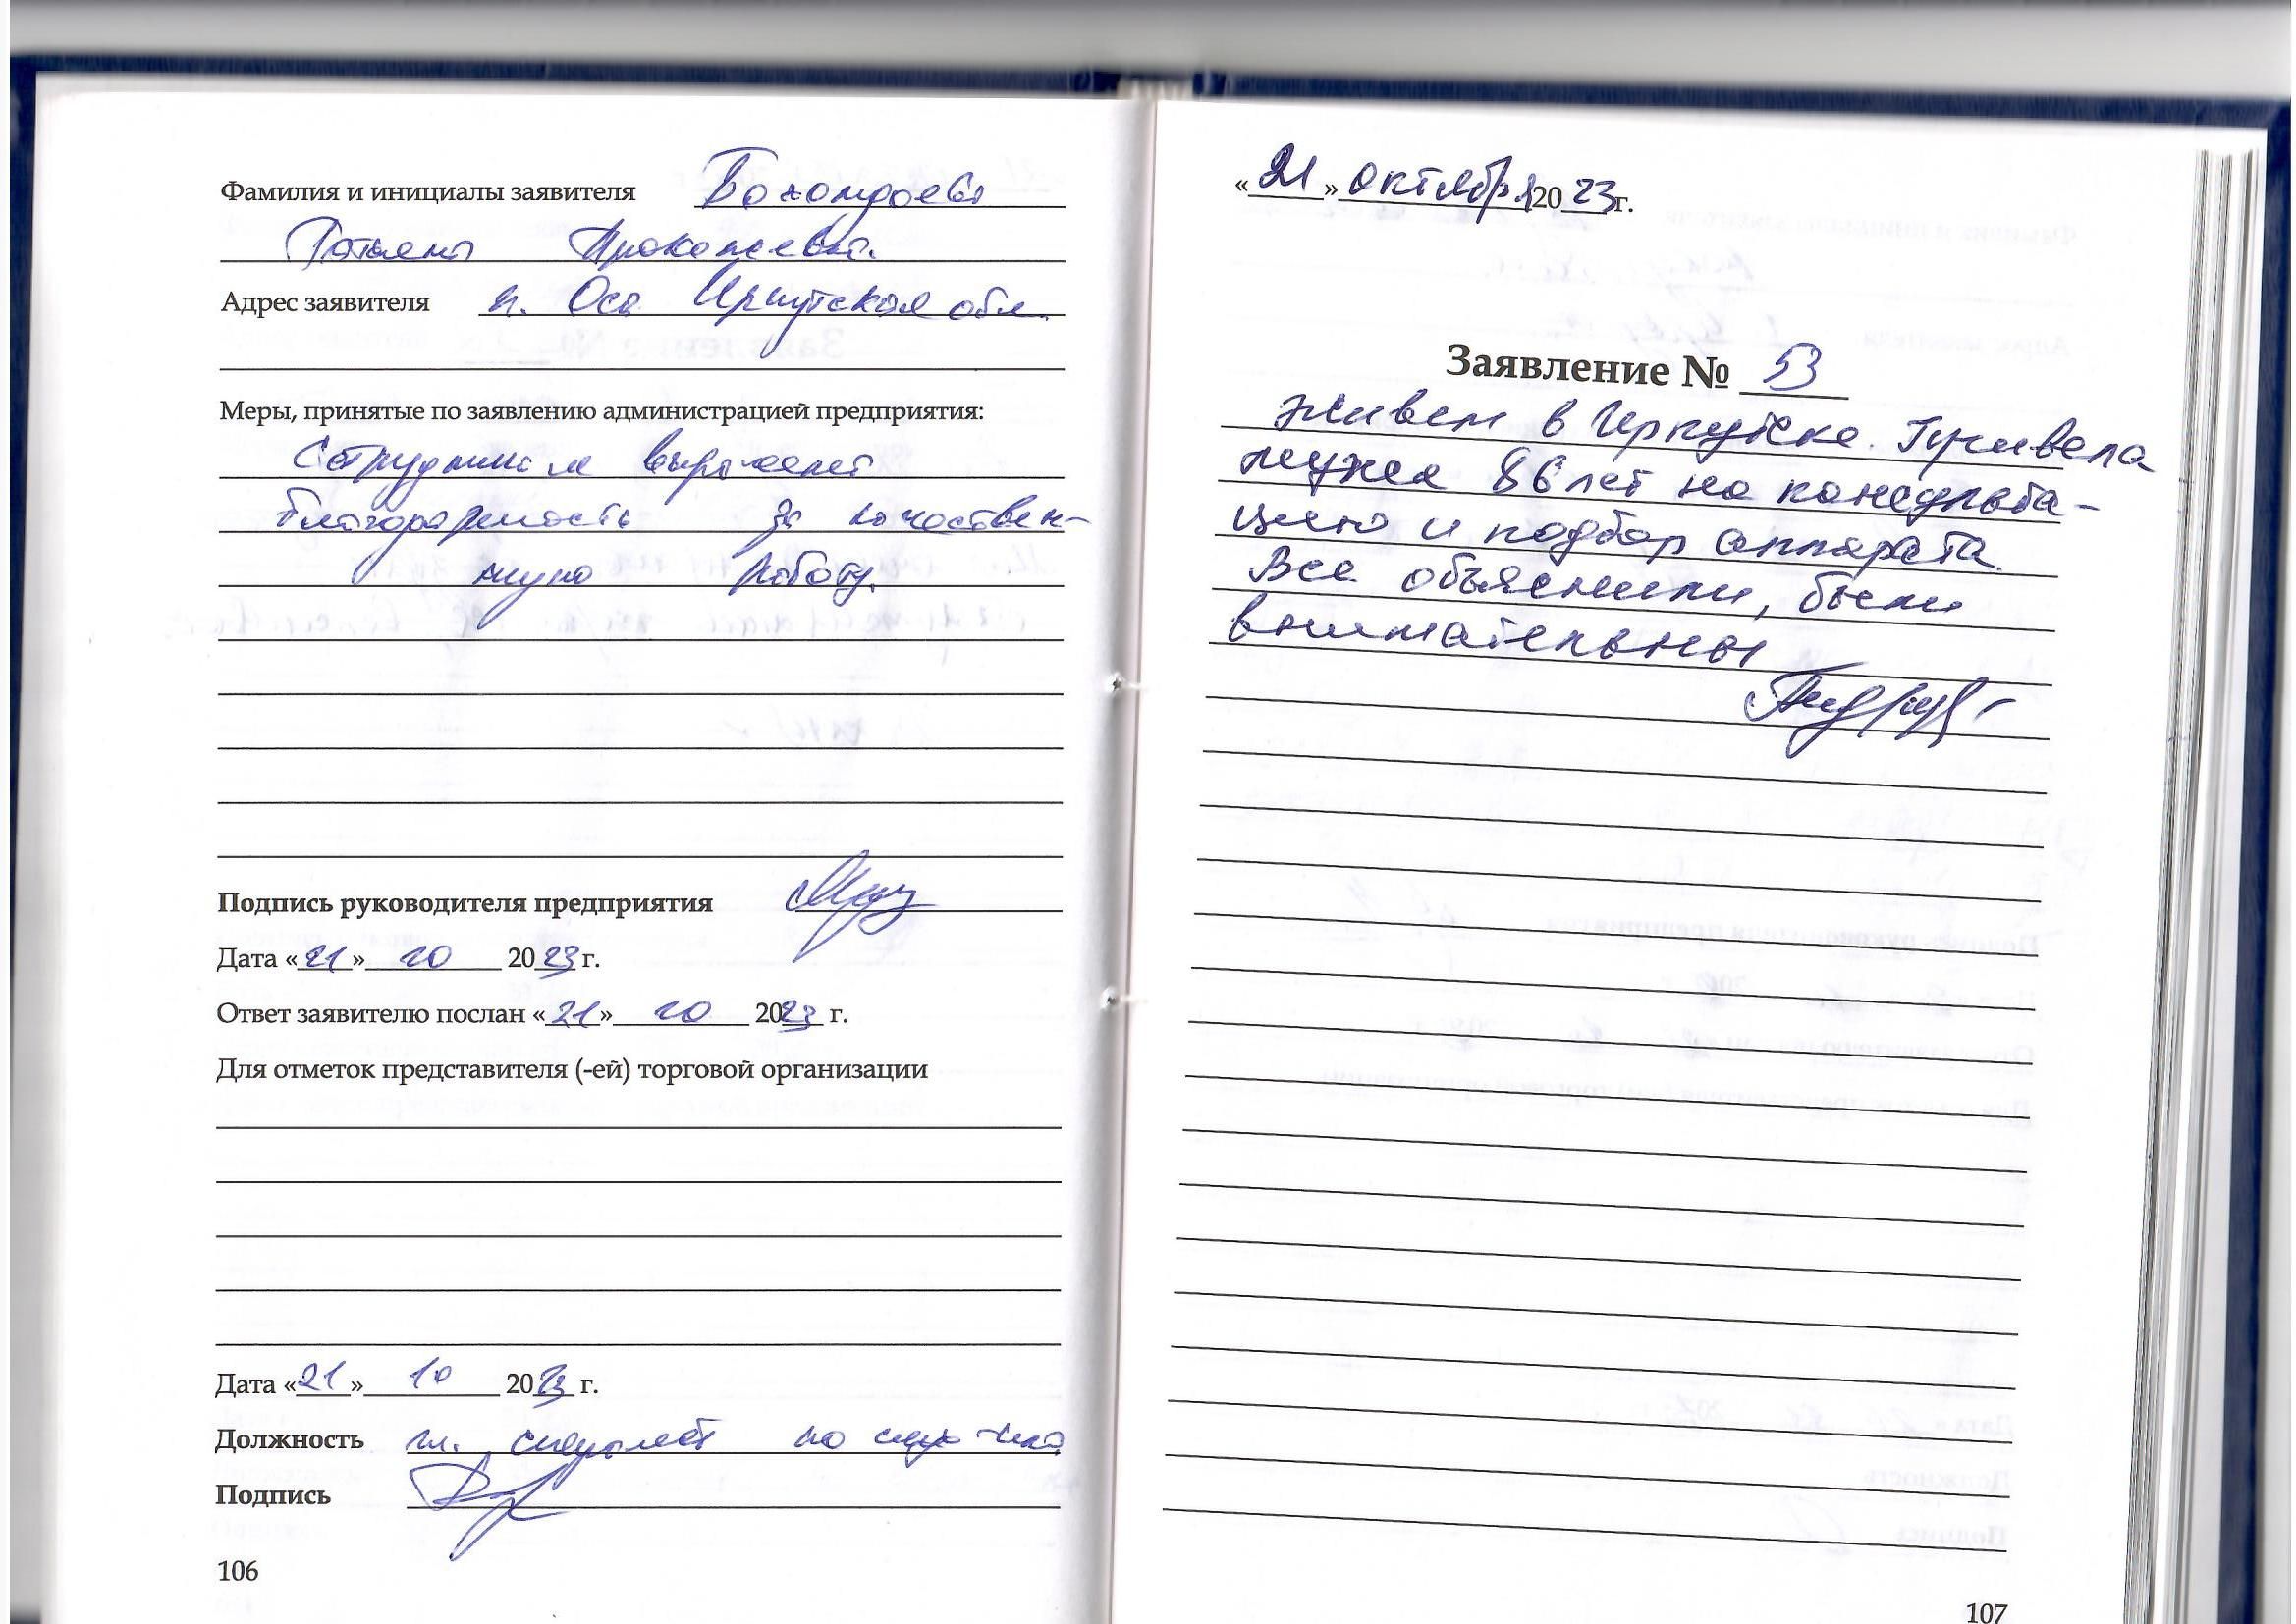 Фамилия и инициалы заявителя
Татьяна Прокопьевна.
Адрес заявителя п. Оса Иркутская обл.
Меры, принятые по заявлению администрацией предприятия:
Сотрудникам выражает
благодарность за качествен-
ную работу.
Подпись руководителя предприятия
Дата «21» 10 2023 г.
Ответ заявителю послан «21» 10 2023 г.
Для отметок представителя (-ей) торговой организации
Дата «21» 10 2023 г.
Должность гл. специалист по
Подпись
106
«21» октября 2023г.
Заявление № 53
живем в Иркутске. Привела
мужа 86 лет на консульта-
цию и подбор аппарата.
Все объяснили, были
внимательны
107